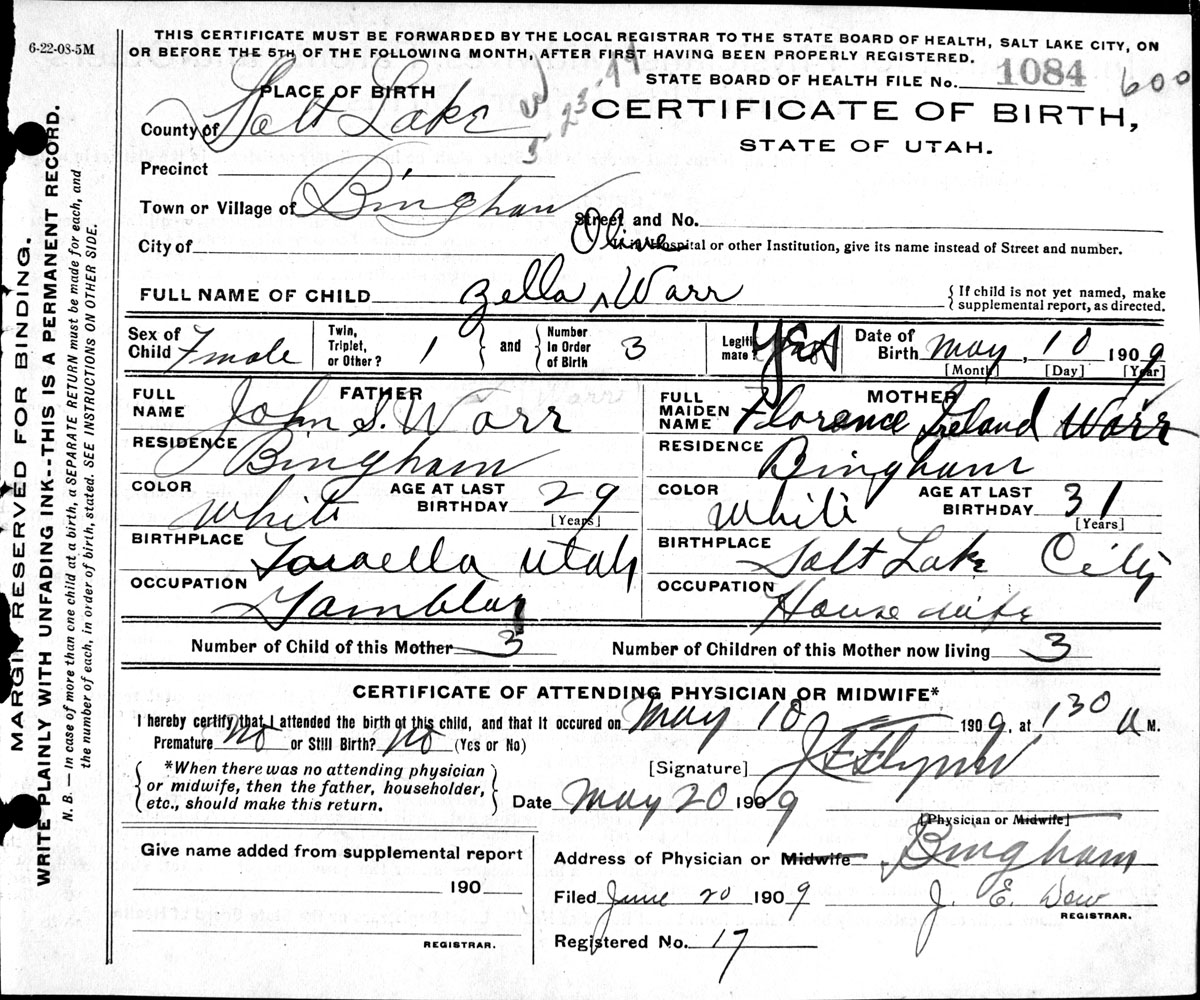 6-22-08-5M
THIS CERTIFICATE MUST BE FORWARDED BY THE LOCAL REGISTRAR TO THE STATE BOARD OF HEALTH, SALT LAKE CITY, ON
OR BEFORE THE 5TH OF THE FOLLOWING MONTH, AFTER FIRST HAVING BEEN PROPERLY REGISTERED.
STATE BOARD OF HEALTH FILE No. 1084 600
PLACE OF BIRTH
County of Salt Lake
CERTIFICATE OF BIRTH,
STATE OF UTAH.
Precinct
Town or Village of Bingham
Street and No.
City of
If in Hospital or other Institution, give its name instead of Street and number.
Olive
FULL NAME OF CHILD Zella ^ Warr
{ If child is not yet named, make
{ supplemental report, as directed.
Sex of Child Fmale
Twin, Triplet, or Other? 1 } and { Number in Order of Birth 3
Legitimate? Yes
Date of Birth May, 10 1909
[Month] [Day] [Year]
FATHER
FULL NAME John S. Warr
RESIDENCE Bingham
COLOR White AGE AT LAST BIRTHDAY 29
[Years]
BIRTHPLACE Tooella Utah
OCCUPATION Gamblar
MOTHER
FULL MAIDEN NAME Florence Ireland Warr
RESIDENCE Bingham
COLOR White AGE AT LAST BIRTHDAY 31
[Years]
BIRTHPLACE Salt Lake City
OCCUPATION House wife
Number of Child of this Mother 3 Number of Children of this Mother now living 3
CERTIFICATE OF ATTENDING PHYSICIAN OR MIDWIFE*
I hereby certify that I attended the birth of this child, and that it occured on May 10 1909, at 130 a M.
Premature No or Still Birth? No (Yes or No)
*When there was no attending physician
or midwife, then the father, householder,
etc., should make this return.
[Signature] J F Flynn
Date May 20 1909
[Physician or Midwife]
Address of Physician or Midwife Bingham
Give name added from supplemental report
190
REGISTRAR.
Filed June 20 1909 J. E. Dow
REGISTRAR.
Registered No. 17
MARGIN RESERVED FOR BINDING.
WRITE PLAINLY WITH UNFADING INK--THIS IS A PERMANENT RECORD.
N. B. — In case of more than one child at a birth, a SEPARATE RETURN must be made for each, and
the number of each, in order of birth, stated. SEE INSTRUCTIONS ON OTHER SIDE.